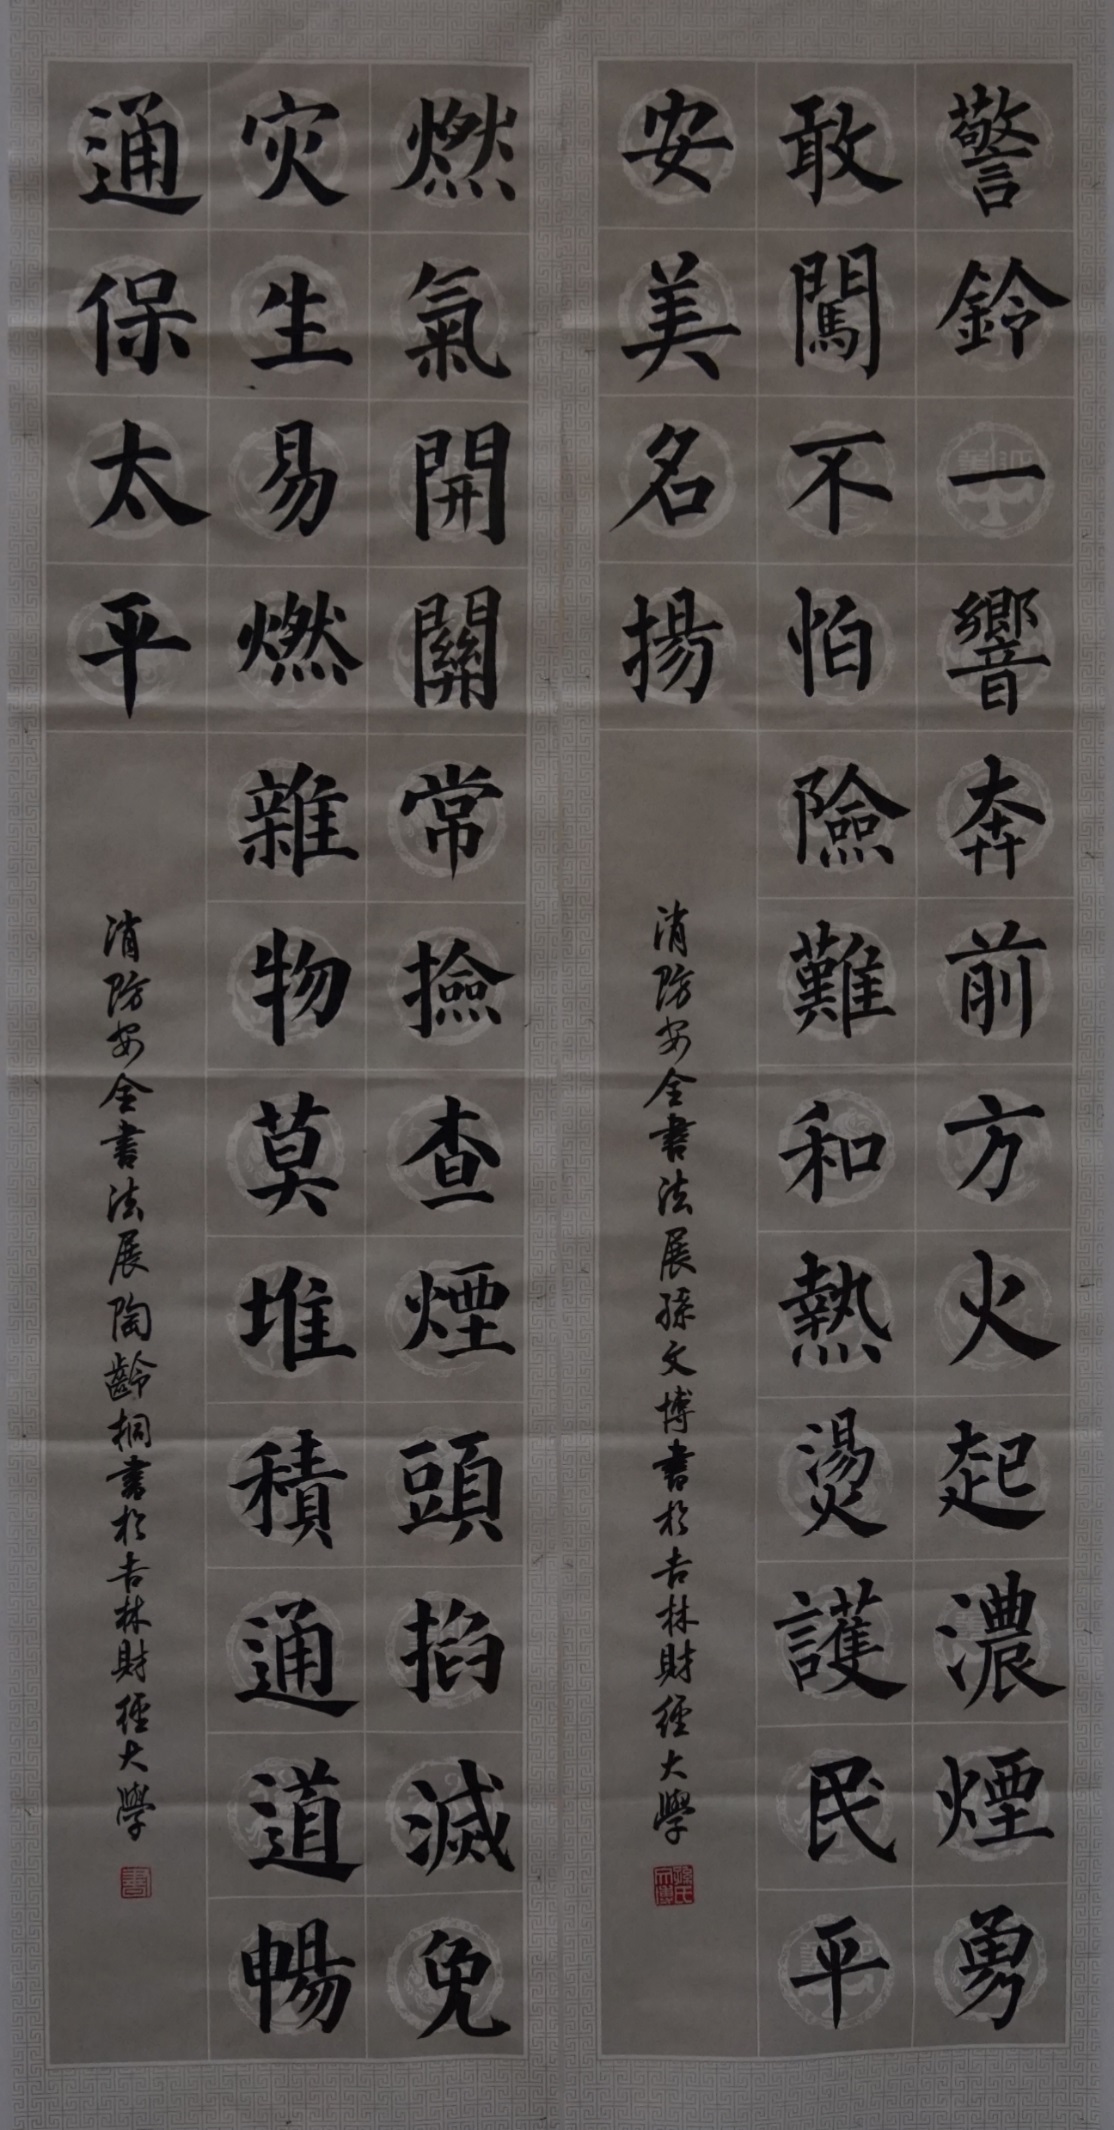 警鈴一響奔前方火起濃煙勇
敢闖不怕險難和熱燙護民平
安美名揚
消防安全書法展孫文博書於吉林財經大學
燃氣開關常撿查煙頭掐滅免
灾生易燃雜物莫堆積通道暢
通保太平
消防安全書法展陶齡桐書於吉林財經大學
書